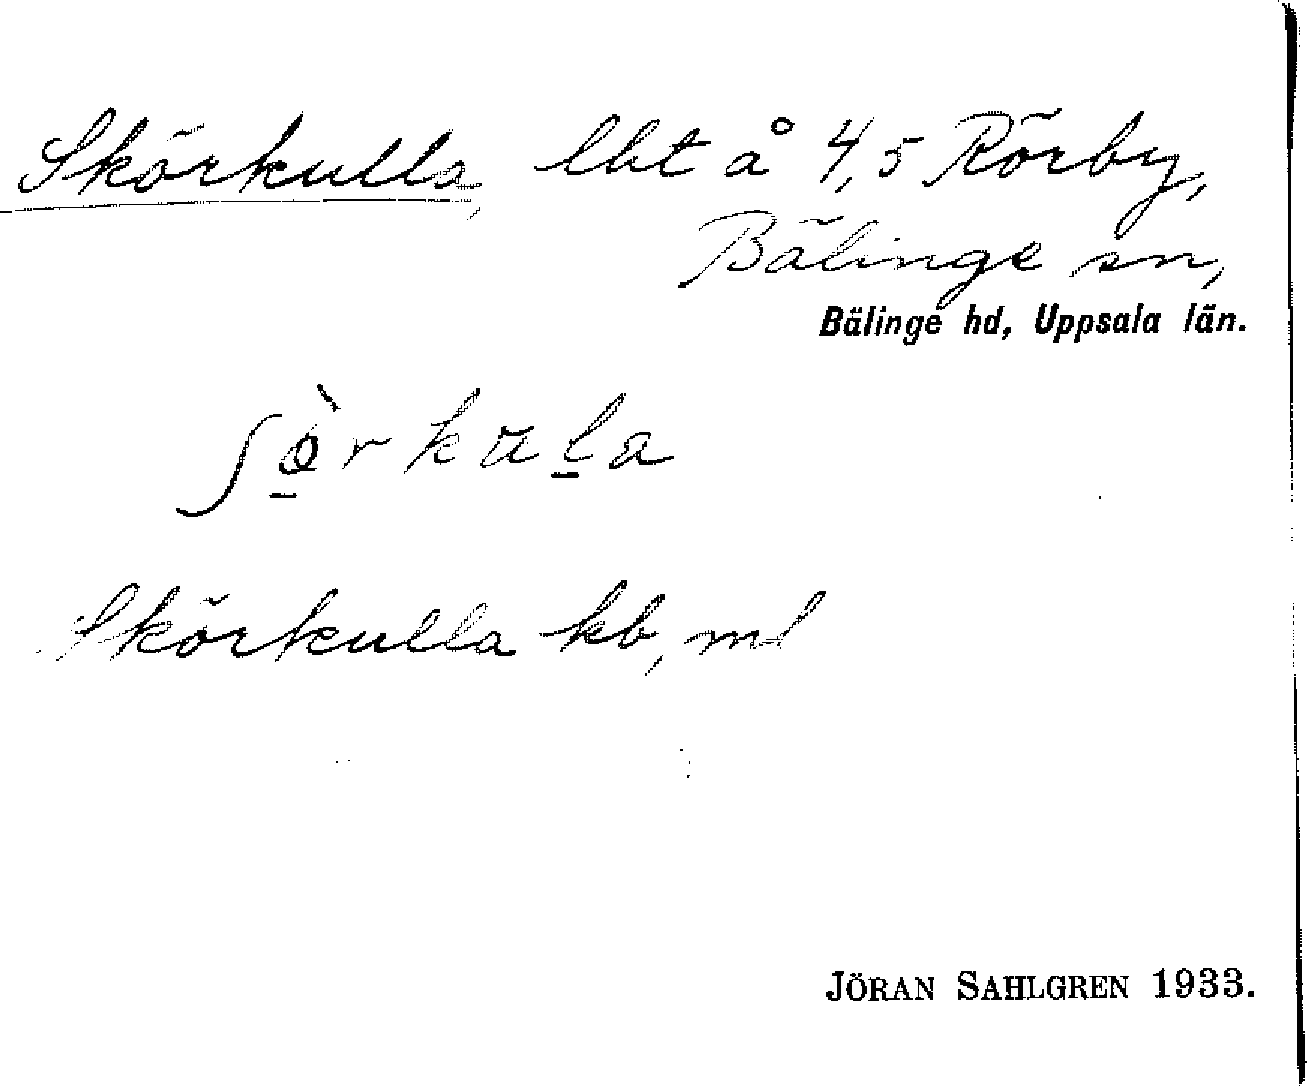 Skörkulla, lht å 4,5 Rörby,
Bälinge sn,
Bälinge hd, Uppsala län.
ʃö̱̀rkuḻa
Skörkulla kb, md
JÖRAN SAHLGREN 1933.